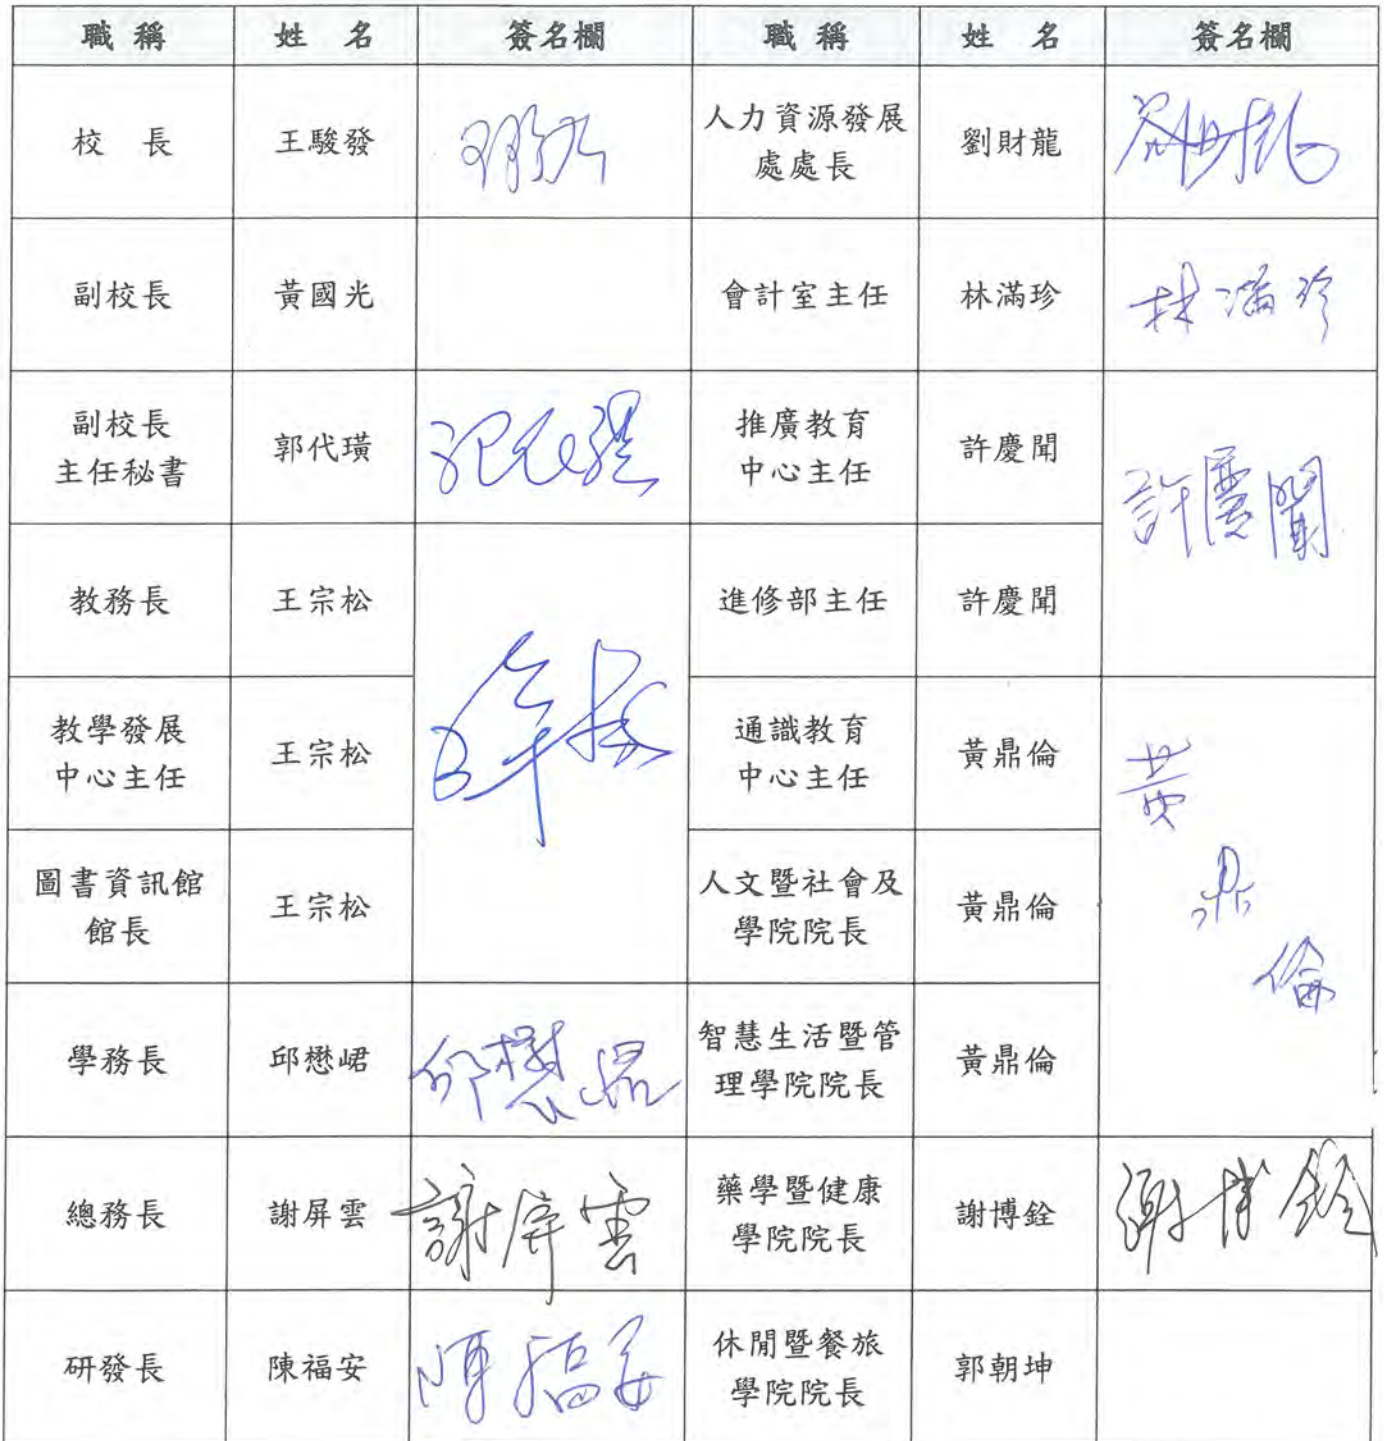 職稱 姓名 簽名欄 職稱 姓名 簽名欄
校長 王駿發 人力資源發展
處處長 劉財龍
副校長 黃國光 會計室主任 林滿珍 林滿珍
副校長
主任秘書 郭代璜 推廣教育
中心主任 許慶聞 許慶聞
教務長 王宗松 進修部主任 許慶聞
教學發展
中心主任 王宗松 通識教育
中心主任 黃鼎倫 黃
鼎
倫
圖書資訊館
館長 王宗松 人文暨社會及
學院院長 黃鼎倫
學務長 邱懋峮 邱懋峮 智慧生活暨管
理學院院長 黃鼎倫
總務長 謝屏雲 謝屏雲 藥學暨健康
學院院長 謝博銓 謝博銓
研發長 陳福安 陳福安 休閒暨餐旅
學院院長 郭朝坤